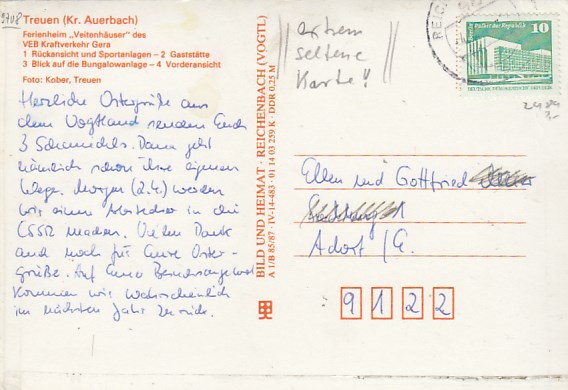 Treuen (Kr. Auerbach)
Ferienheim „Veitenhäuser" des
VEB Kraftverkehr Gera
1 Rückansicht und Sportanlagen – 2 Gaststätte
3 Blick auf die Bungalowanlage – 4 Vorderansicht
Foto: Kober, Treuen
Herzliche Ostergrüße aus
dem Vogtland senden Euch
3 Dana geht
nämlich schon ihre eigenen
Wege. Morgen (2.4.) werden
wir einen Abstecher in die
ČSSR machen. Vielen Dank
auch noch für Eure Oster-
grüße. Auf Euer
kommen wir wahrscheinlich
im nächsten Jahr zurück.
BILD UND HEIMAT · REICHENBACH (VOGTL)
A 1/B 85/87 · IV-14-483 · 01 14 03 259 K · DDR 0,25 M
extrem
seltene
Karte!!
Palast der Republik
10
DEUTSCHE DEMOKRATISCHE REPUBLIK
Ellen und Gottfried
Adorf /E.
9122